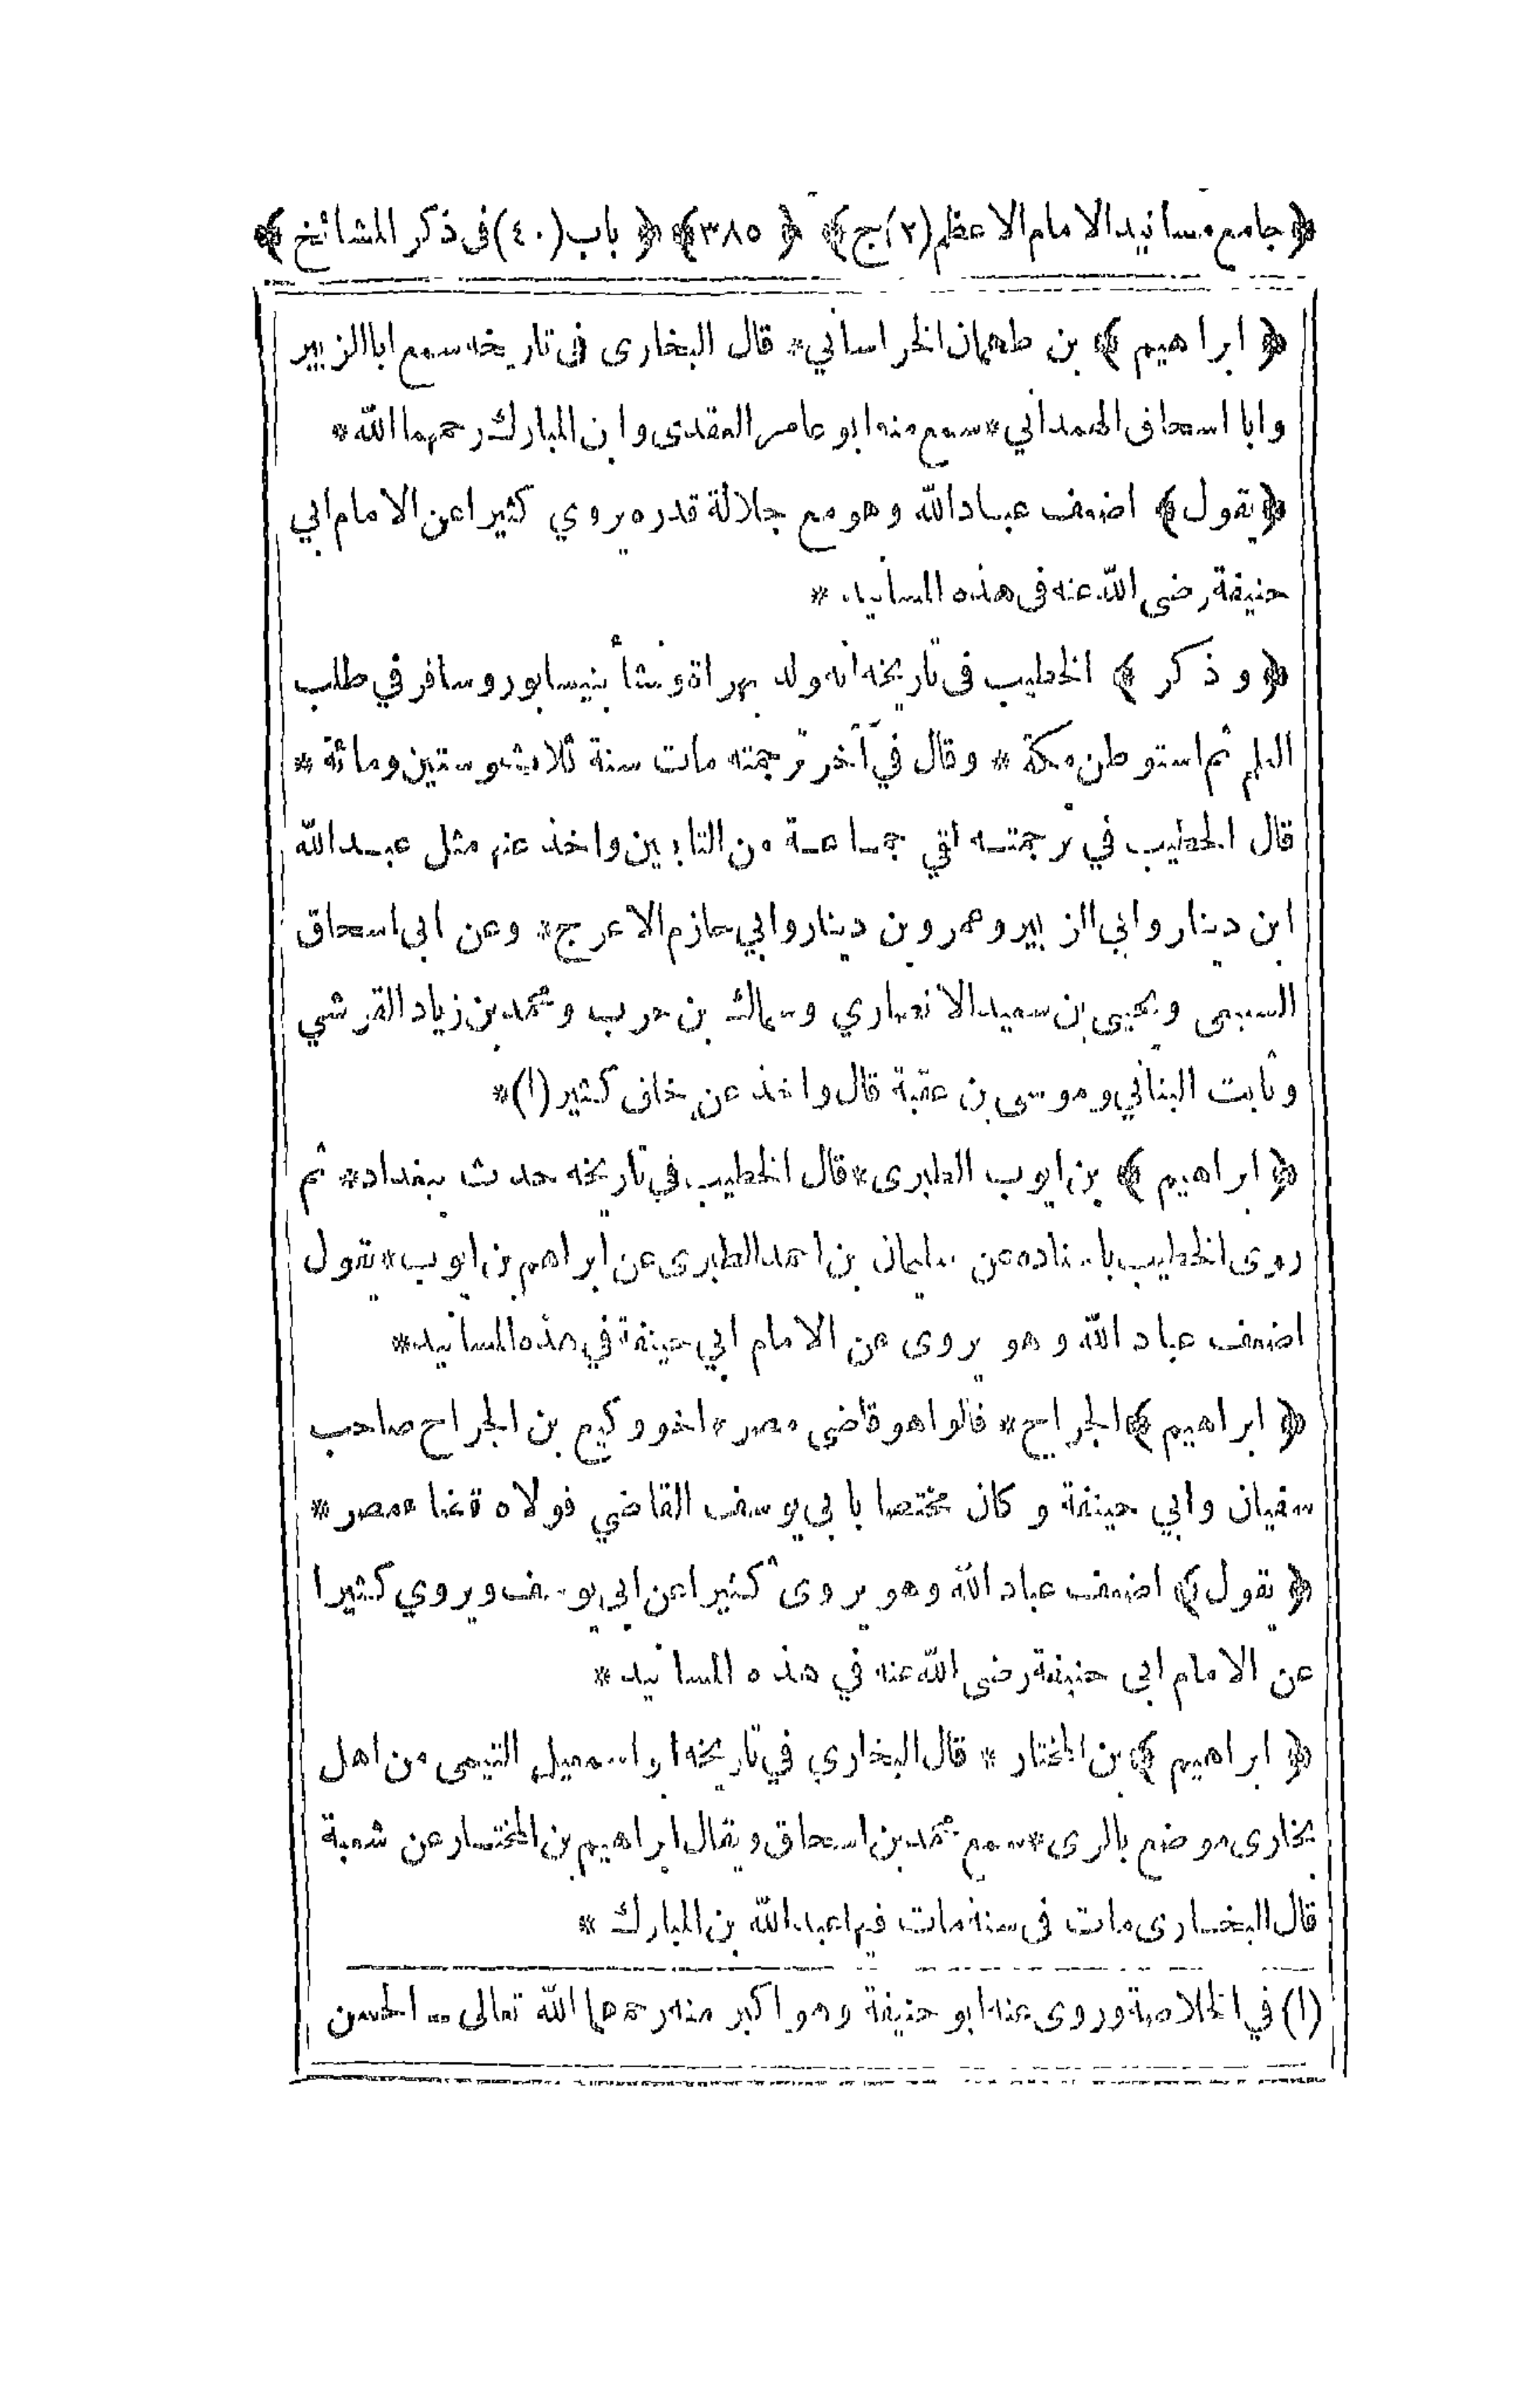 ﴿ جامع مسانيد الامام الاعظم (٢) ج ﴾ ﴿ ٣٨٥ ﴾ ﴿ باب (٤٠) فى ذكر المشائخ ﴾
﴿ ابراهيم ﴾ بن طهمان الخراساني * قال البخارى فى تاريخه سمع ابا الزبير
وابا اسحاق الهمداني * سمع منه ابو عامر العقدى وابن المبارك رحمهما الله *
﴿ يقول ﴾ اضعف عباد الله وهو مع جلالة قدره يروي كثيرا عن الامام ابي
حنيفة رضى الله عنه فى هذه المسانيد *
﴿ وذكر ﴾ الخطيب فى تاريخه انه ولد بهراة ونشأ بنيسابور وسافر في طلب
العلم ثم استوطن مكة * وقال في آخر ترجمته مات سنة ثلاث وستين ومائة *
قال الخطيب في ترجمته لقي جماعة من التابعين واخذ عنهم مثل عبد الله
ابن دينار وابي الزبير وعمرو بن دينار وابي حازم الاعرج * وعن ابى اسحاق
السبيعى ويحيى بن سعيد الانصاري وسماك بن حرب ومحمد بن زياد القرشي
وثابت البناني وموسى بن عقبة قال واخذ عن خلق كثير (١) *
﴿ ابراهيم ﴾ بن ايوب الطبرى * قال الخطيب في تاريخه حدث ببغداد * ثم
روى الخطيب باسناده عن سليمان بن احمد الطبرى عن ابراهيم بن ايوب * يقول
اضعف عباد الله وهو يروى عن الامام ابي حنيفة في هذه المسانيد *
﴿ ابراهيم ﴾ الجراح * قالوا هو قاضى مصر * اخو وكيع بن الجراح صاحب
سفيان وابي حنيفة وكان مختصا بابي يوسف القاضي فولاه قضا مصر *
﴿ يقول ﴾ اضعف عباد الله وهو يروى كثيرا عن ابى يوسف ويروي كثيرا
عن الامام ابى حنيفة رضى الله عنه في هذه المسانيد *
﴿ ابراهيم ﴾ بن المختار * قال البخاري في تاريخه ابو اسمعيل التيمى من اهل
بخارى موضع بالرى * سمع محمد بن اسحاق ويقال ابراهيم بن المختار عن شعبة
قال البخارى مات فى سنة مات فيها عبد الله بن المبارك *
(١) في الخلاصة وروى عنه ابو حنيفة وهو اكبر منه رحمهما الله تعالى .. الحسن